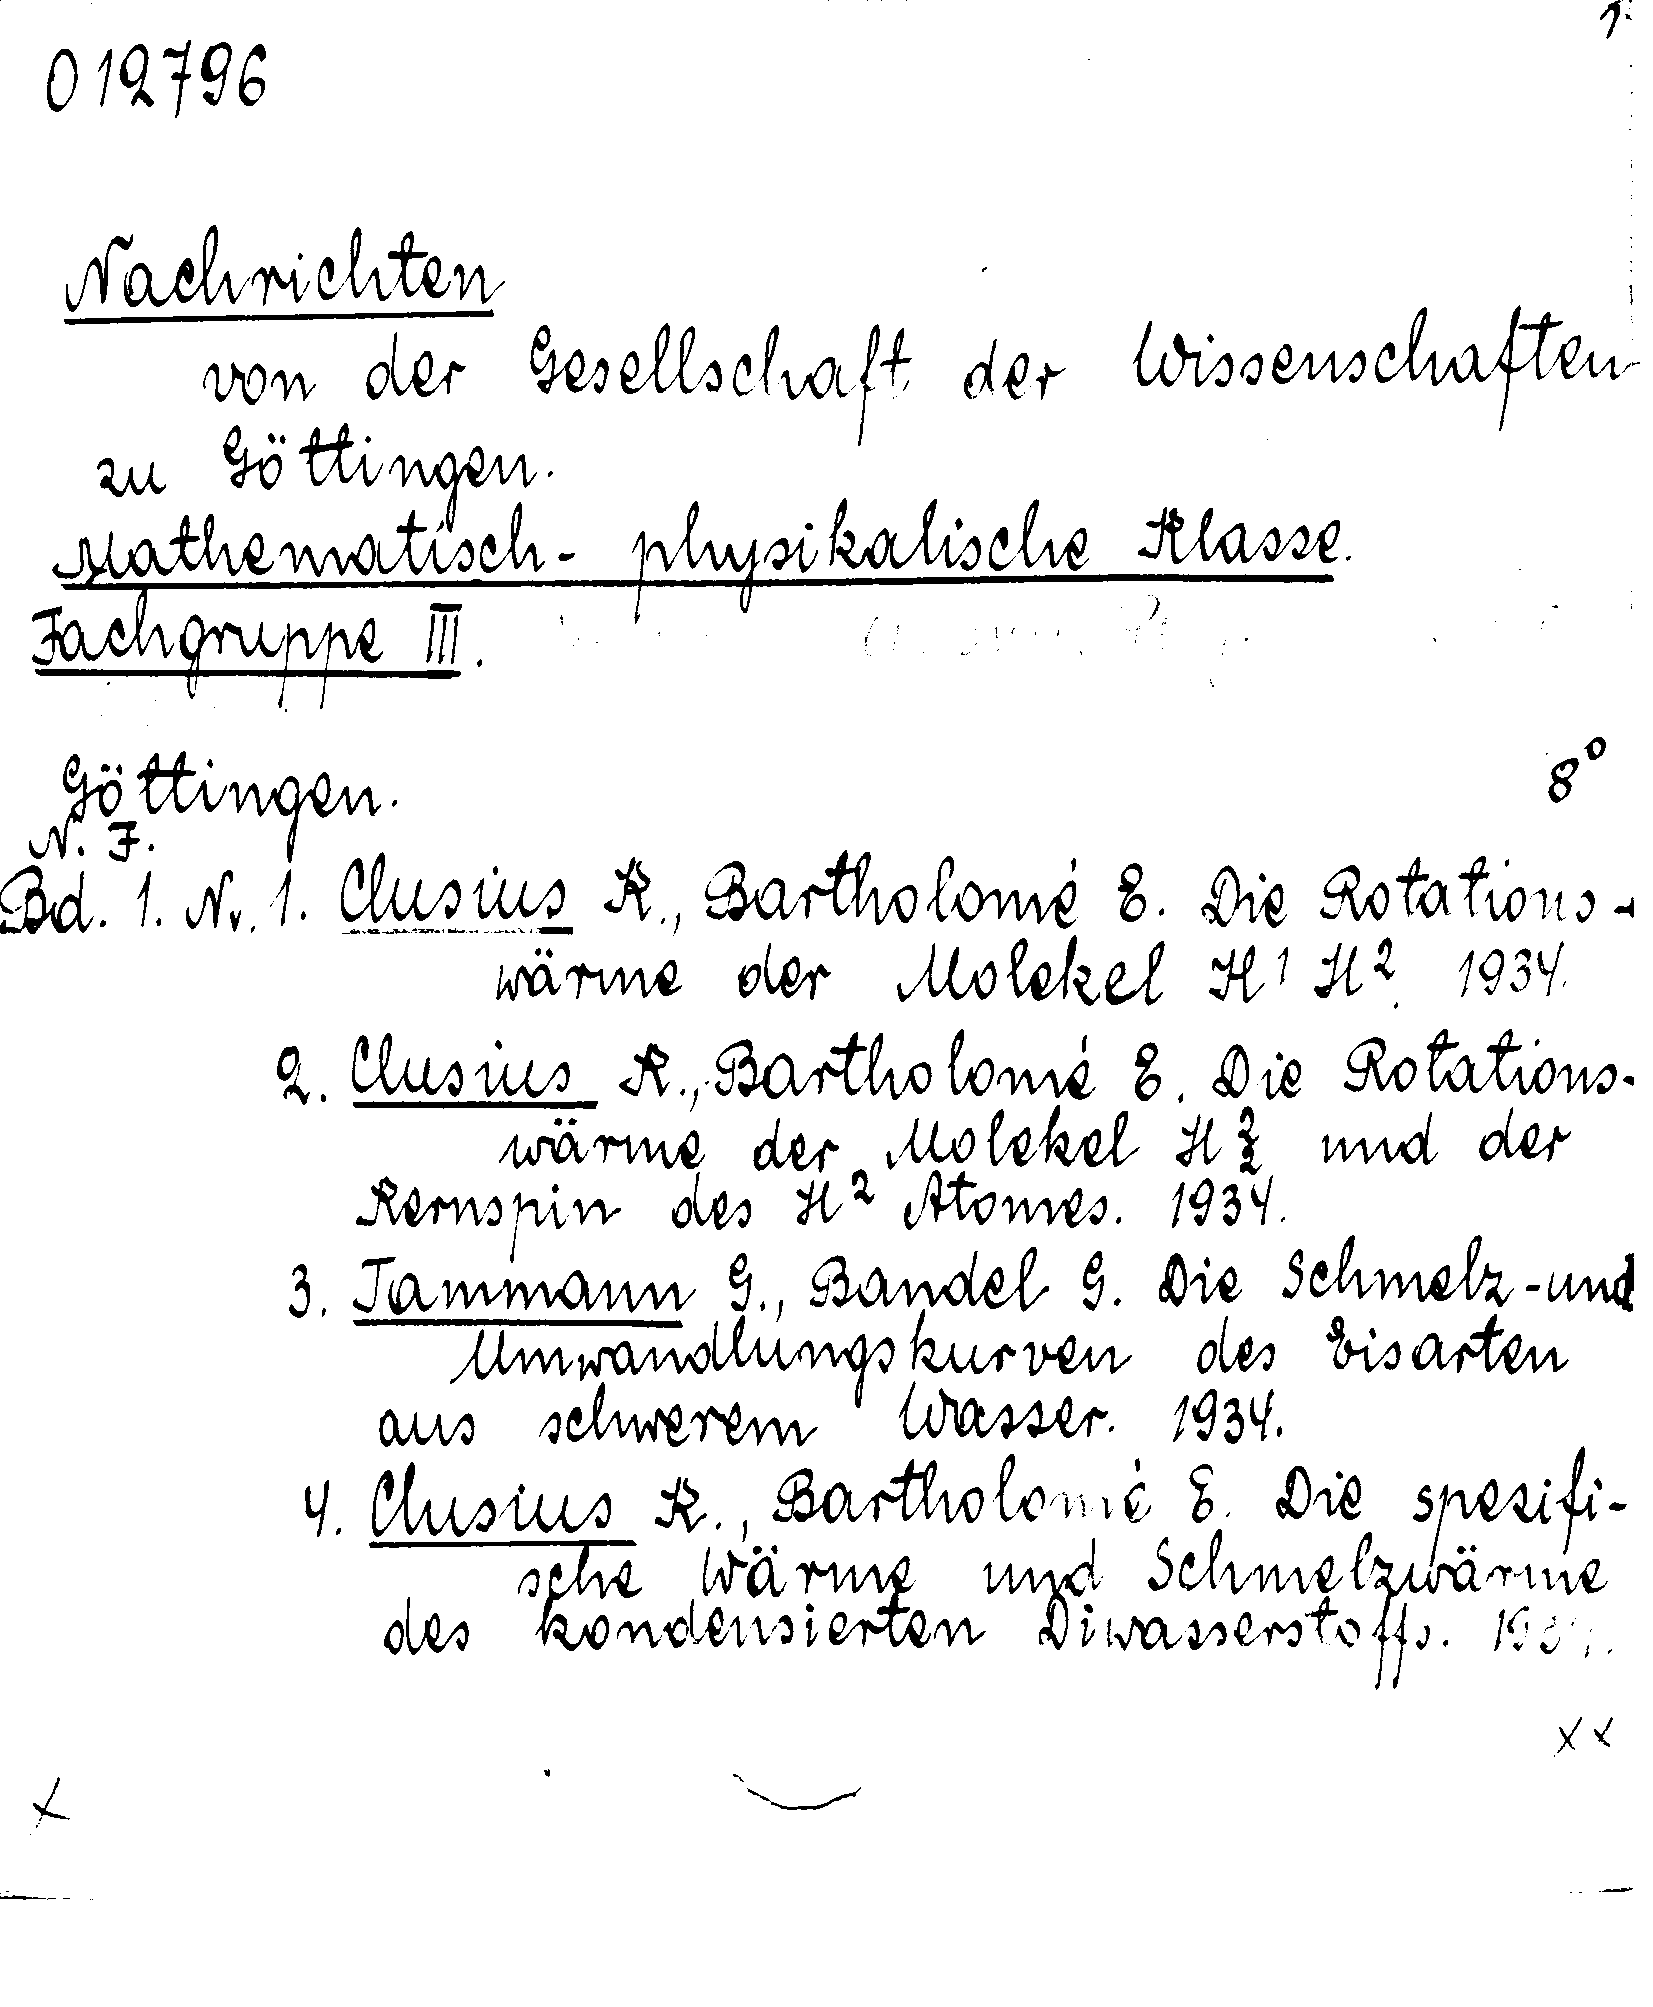 1.
012796
Nachrichten
von der Gesellschaft der Wissenschaften
zu Göttingen.
Mathematisch- physikalische Klasse.
Fachgruppe III.
Göttingen. 8°
N. F.
Bd. 1. Nr. 1. Clusius K., Bartholomé E. Die Rotations-
wärme der Molekel H¹ H². 1934.
2. Clusius K., Bartholomé E. Die Rotations-
wärme der Molekel H²₂ und der
Kernspin des H² Atomes. 1934.
3. Tammann G., Bandel G. Die Schmelz-und
Umwandlungskurven des Eisarten
aus schwerem Wasser. 1934.
4. Clusius K., Bartholomé E. Die spezifi-
sche Wärme und Schmelzwärme
des kondensierten Diwasserstoffs.
x x
x